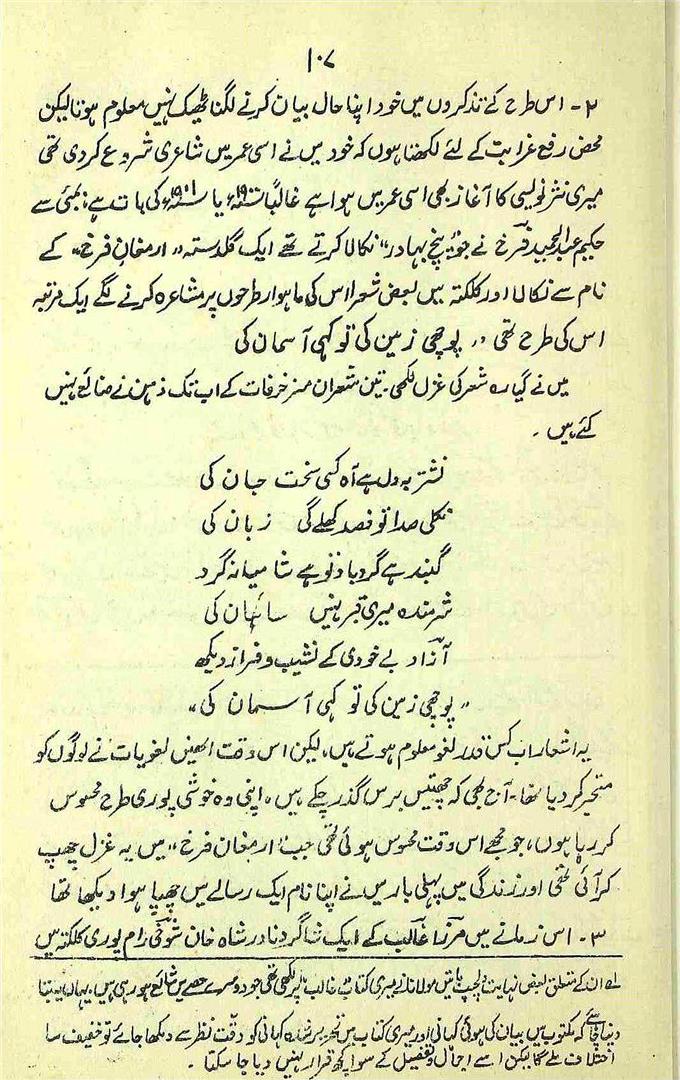 ۱۰۷
۲ - اس طرح کے تذکروں میں خود اپنا حال بیان کرنے لگنا ٹھیک نہیں معلوم ہوتا لیکن
محض رفع غرابت کے لئے لکھتا ہوں کہ خود میں نے اسی عمر میں شاعری شروع کر دی تھی
میری نثر نویسی کا آغاز بھی اسی عمر میں ہوا ہے غالباً ۱۹۰۰ء یا ۱۹۰۱ء کی بات ہے، بمبئی سے
حکیم عبدالحمید فرخ نے جو "پنچ بہادر" نکالا کرتے تھے ایک گلدستہ "ارمغان فرخ" کے
نام سے نکالا اور کلکتہ میں بعض شعرا اس کی ماہوار طرحوں پر مشاعرہ کرنے لگے ایک مرتبہ
اس کی طرح تھی "پوچھی زمین کی تو کہی آسمان کی
میں نے گیارہ شعر کی غزل لکھی۔ تین شعر ان مزخرفات کے اب تک ذہن نے ضائع نہیں
کئے ہیں ۔
نشتر بہ دل ہے آہ کسی سخت جان کی
نکلی صدا تو فصد کھلے گی زبان کی
گنبد ہے گرد باد تو ہے شامیانہ گرد
شرمندہ میری قبر نہیں سائبان کی
آزاد بے خودی کے نشیب و فراز دیکھ
"پوچھی زمین کی تو کہی آسمان کی"
یہ اشعار اب کس قدر لغو معلوم ہوتے ہیں، لیکن اس وقت انھیں لغویات نے لوگوں کو
متحیر کر دیا تھا۔ آج بھی کہ چھتیس برس گذر چکے ہیں، اپنی وہ خوشی پوری طرح محسوس
کر رہا ہوں، جو مجھے اس وقت محسوس ہوئی تھی جب "ارمغان فرخ" میں یہ غزل چھپ
کر آئی تھی اور زندگی میں پہلی بار میں نے اپنا نام ایک رسالے میں چھپا ہوا دیکھا تھا
۳ - اس زمانے میں مرزا غالب کے ایک شاگرد نادر شاہ خان شوخی رام پوری کلکتہ میں
لے ان کے متعلق بعض نہایت دلچسپ باتیں مولانا نے میری کتاب "غالب" پر لکھی تھی جو دوسرے حصے میں شائع ہو رہی ہیں، یہاں یہ بتا
دینا چاہیے کہ مکتوب میں بیان کی ہوئی کہانی اور میری کتاب میں تحریر شدہ کہانی کو دقّت نظر سے دیکھا جائے تو خفیف سا
اختلاف ملے گا لیکن اسے اجمال و تفصیل کے سوا کچھ قرار نہیں دیا جا سکتا ۔